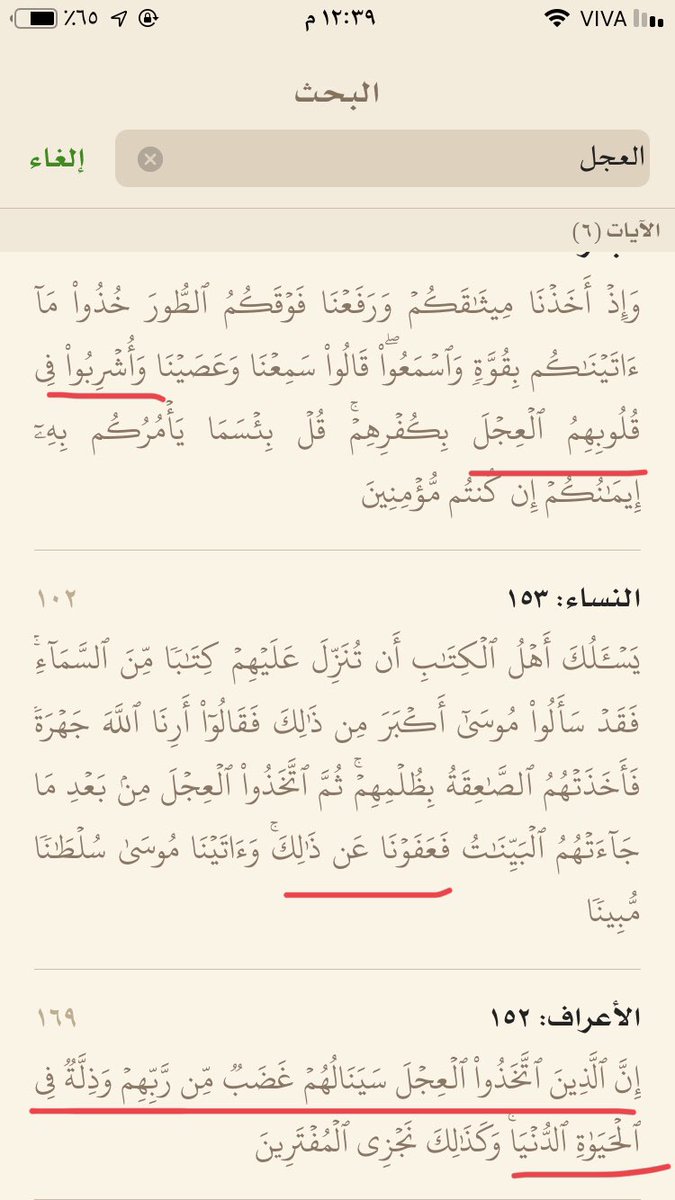 ١٢:٣٩ م VIVA ٪٦٥
البحث
العجل إلغاء
الآيات (٦)
وَإِذۡ أَخَذۡنَا مِيثَٰقَكُمۡ وَرَفَعۡنَا فَوۡقَكُمُ ٱلطُّورَ خُذُواْ مَآ
ءَاتَيۡنَٰكُم بِقُوَّةٖ وَٱسۡمَعُواْۖ قَالُواْ سَمِعۡنَا وَعَصَيۡنَا وَأُشۡرِبُواْ فِي
قُلُوبِهِمُ ٱلۡعِجۡلَ بِكُفۡرِهِمۡۚ قُلۡ بِئۡسَمَا يَأۡمُرُكُم بِهِۦٓ
إِيمَٰنُكُمۡ إِن كُنتُم مُّؤۡمِنِينَ
النساء: ١٥٣ ١٠٢
يَسۡـَٔلُكَ أَهۡلُ ٱلۡكِتَٰبِ أَن تُنَزِّلَ عَلَيۡهِمۡ كِتَٰبٗا مِّنَ ٱلسَّمَآءِۚ
فَقَدۡ سَأَلُواْ مُوسَىٰٓ أَكۡبَرَ مِن ذَٰلِكَ فَقَالُوٓاْ أَرِنَا ٱللَّهَ جَهۡرَةٗ
فَأَخَذَتۡهُمُ ٱلصَّٰعِقَةُ بِظُلۡمِهِمۡۚ ثُمَّ ٱتَّخَذُواْ ٱلۡعِجۡلَ مِنۢ بَعۡدِ مَا
جَآءَتۡهُمُ ٱلۡبَيِّنَٰتُ فَعَفَوۡنَا عَن ذَٰلِكَۚ وَءَاتَيۡنَا مُوسَىٰ سُلۡطَٰنٗا
مُّبِينٗا
الأعراف: ١٥٢ ١٦٩
إِنَّ ٱلَّذِينَ ٱتَّخَذُواْ ٱلۡعِجۡلَ سَيَنَالُهُمۡ غَضَبٞ مِّن رَّبِّهِمۡ وَذِلَّةٞ فِي
ٱلۡحَيَوٰةِ ٱلدُّنۡيَاۚ وَكَذَٰلِكَ نَجۡزِي ٱلۡمُفۡتَرِينَ